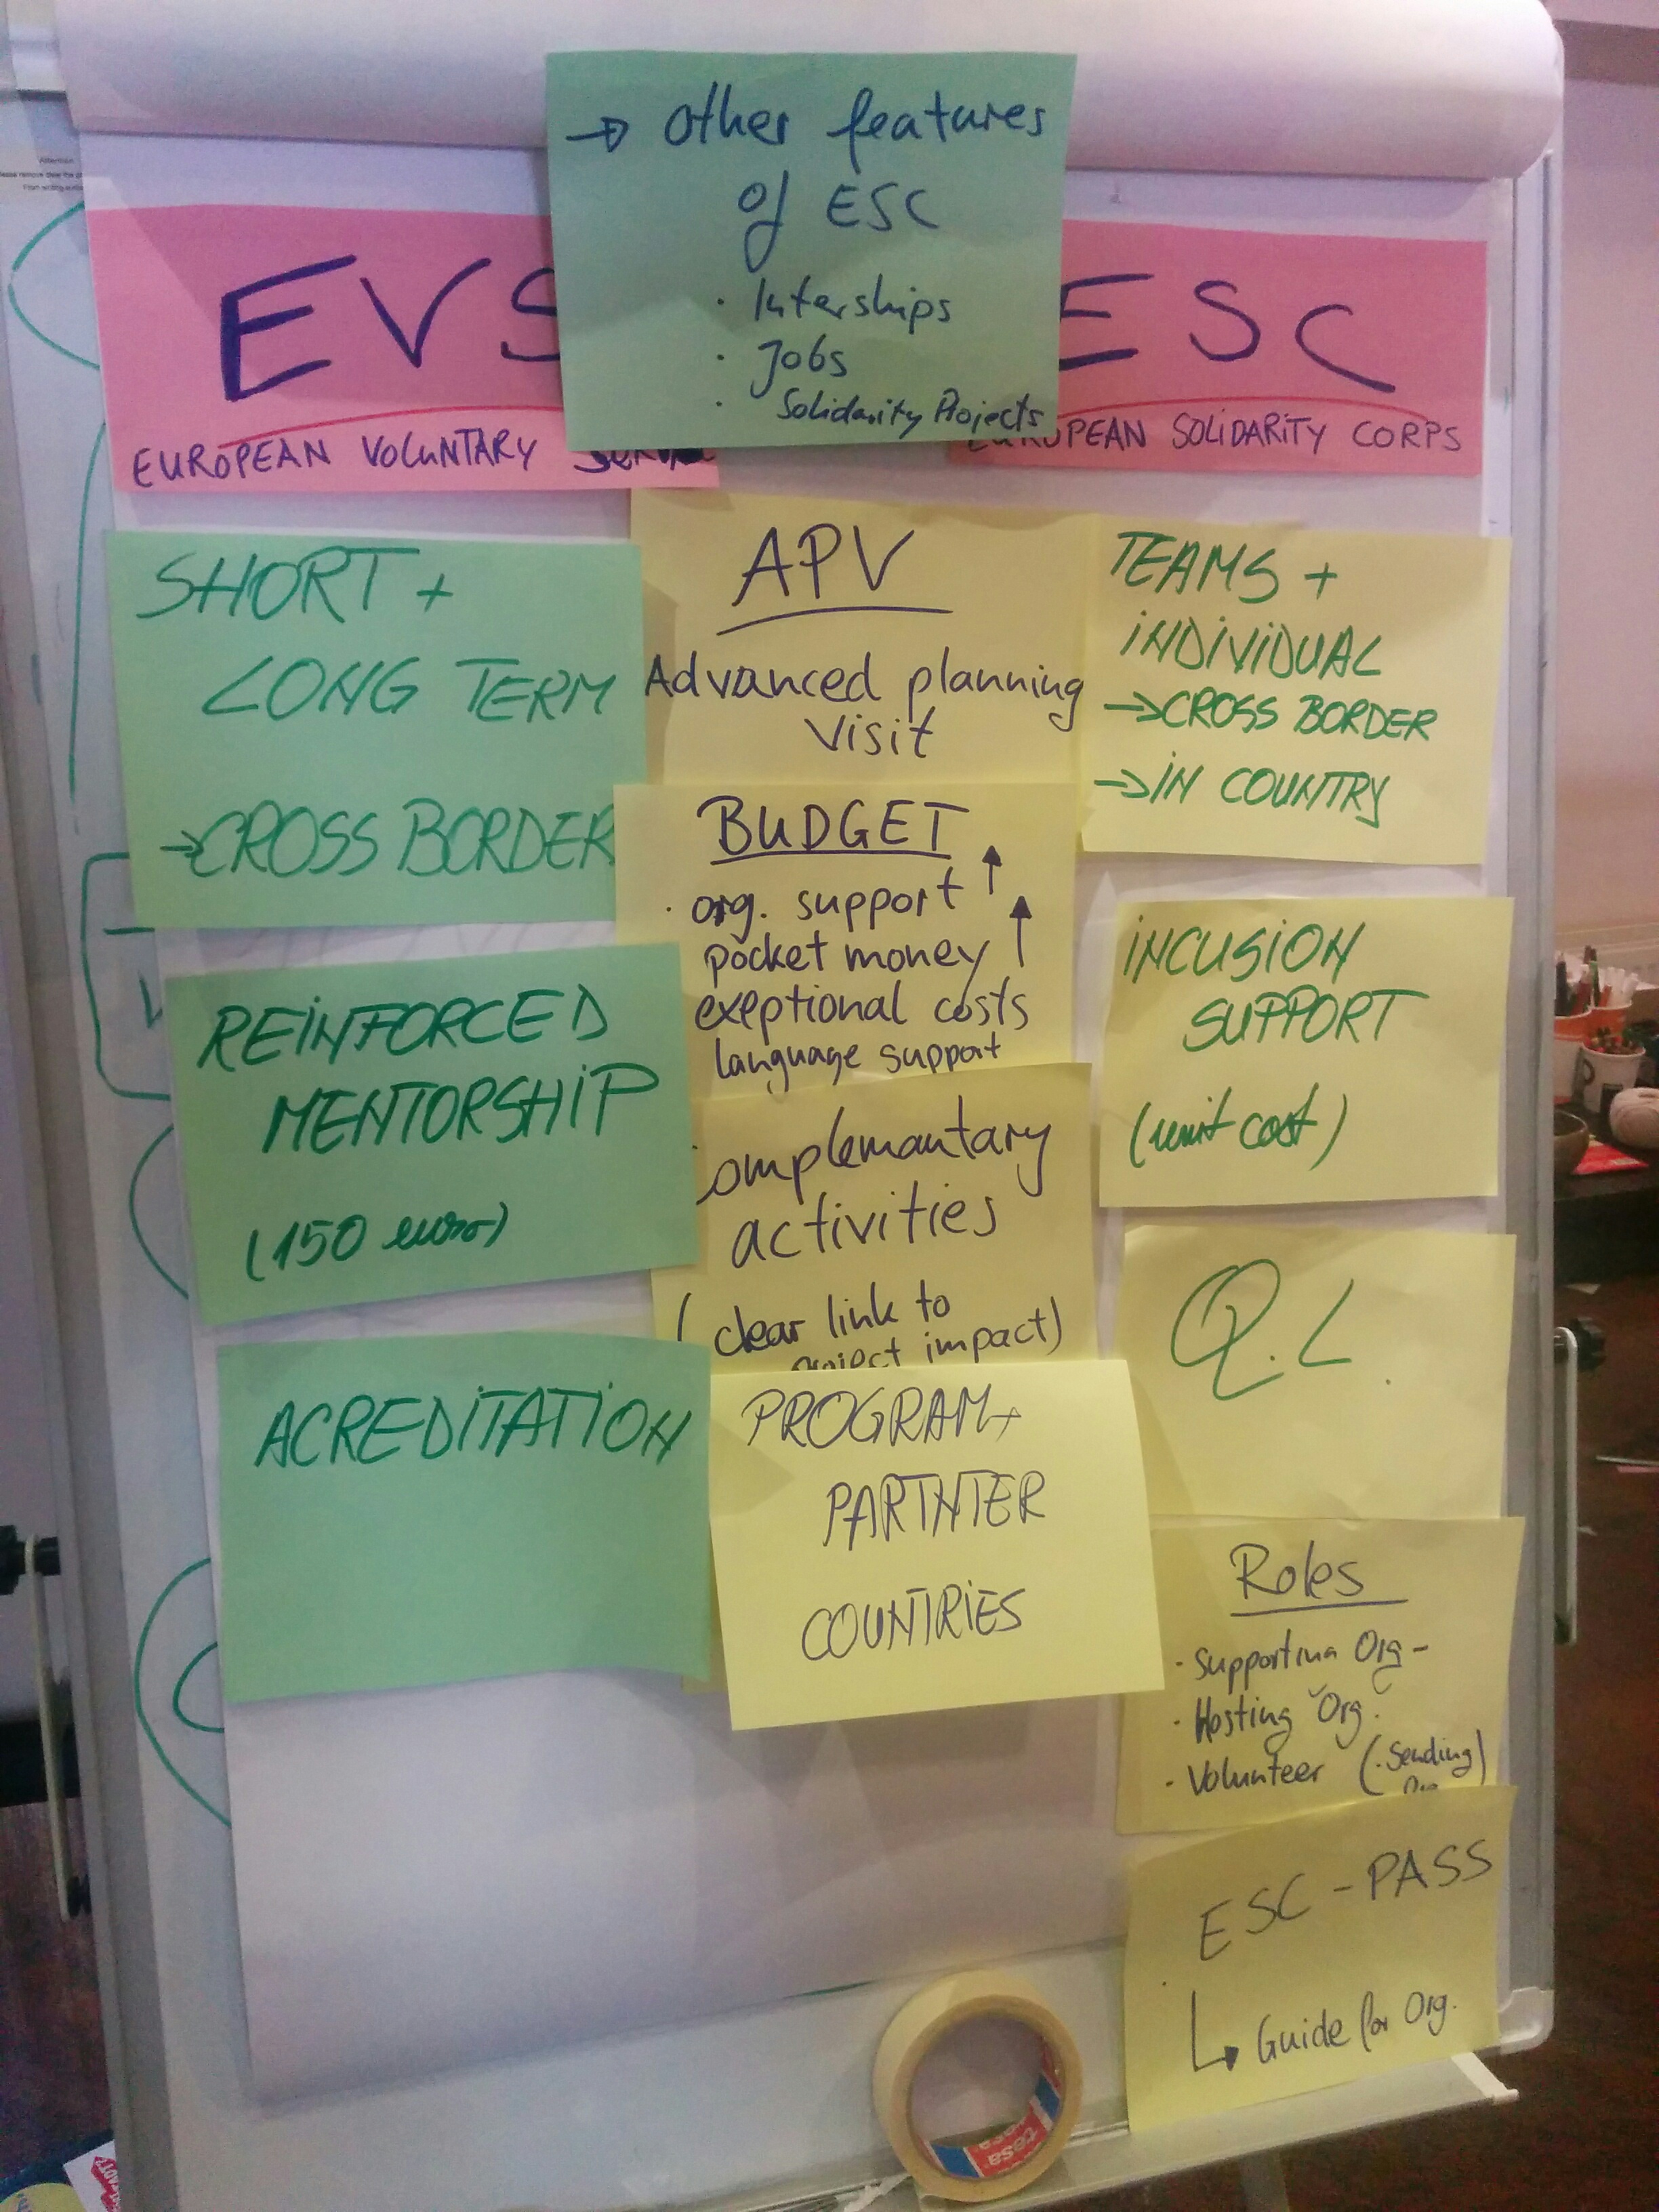 → Other features
of ESC
· Interships
· Jobs
· Solidarity Projects
EVS
EUROPEAN VOLUNTARY
ESC
EUROPEAN SOLIDARITY CORPS
SHORT +
LONG TERM
→ CROSS BORDER
REINFORCED
MENTORSHIP
(150 euro)
ACREDITATION
APV
Advanced planning
visit
BUDGET
· org. support ↑
pocket money ↑
exeptional costs
language support
omplemantary
activities
( clear link to
project impact)
PROGRAM +
PARTNTER
COUNTRIES
TEAMS +
INDIVIDUAL
→ CROSS BORDER
→ IN COUNTRY
INCUSION
SUPPORT
(unit cost)
Q.L.
Roles
· Supporting Org -
· Hosting Org.
· Volunteer (· Sending)
ESC - PASS
↳ Guide for Org.
Attention
tesa